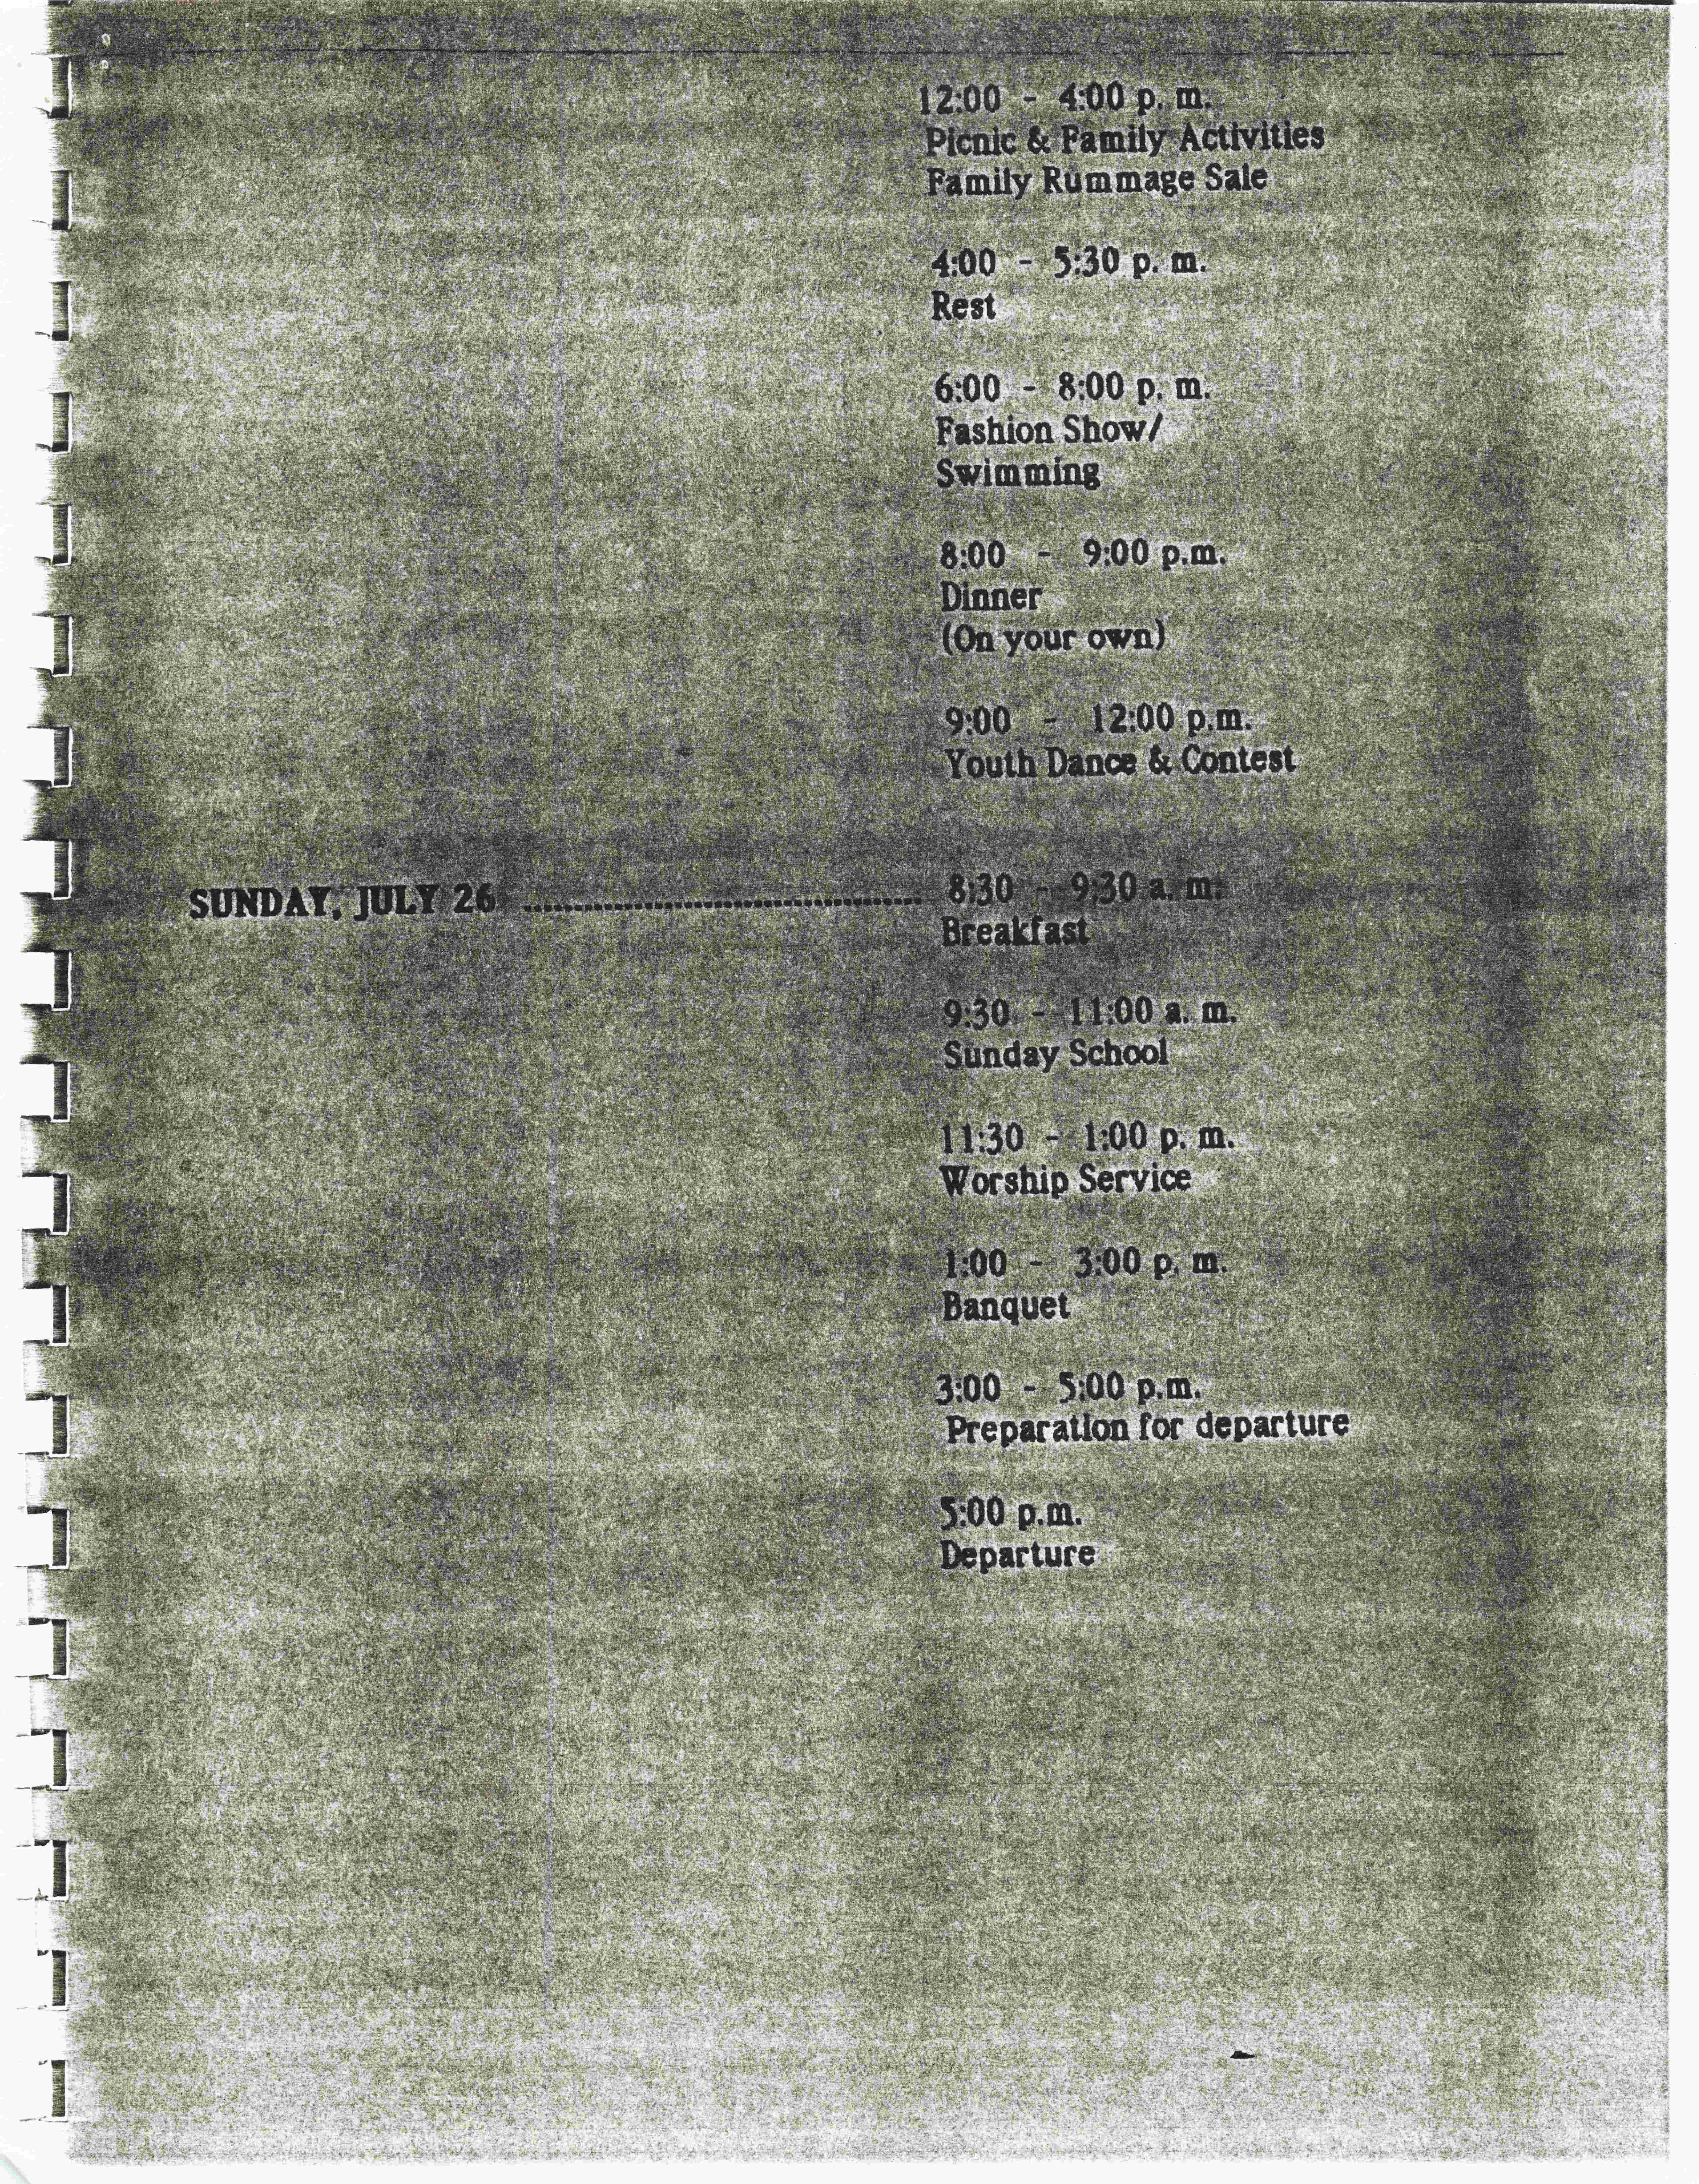 12:00 - 4:00 p. m.
Picnic & Family Activities
Family Rummage Sale
4:00 - 5:30 p. m.
Rest
6:00 - 8:00 p. m.
Fashion Show/
Swimming
8:00 - 9:00 p.m.
Dinner
(On your own)
9:00 - 12:00 p.m.
Youth Dance & Contest
SUNDAY, JULY 26 ........................................ 8:30 - 9:30 a. m.
Breakfast
9:30 - 11:00 a. m.
Sunday School
11:30 - 1:00 p. m.
Worship Service
1:00 - 3:00 p. m.
Banquet
3:00 - 5:00 p.m.
Preparation for departure
5:00 p.m.
Departure